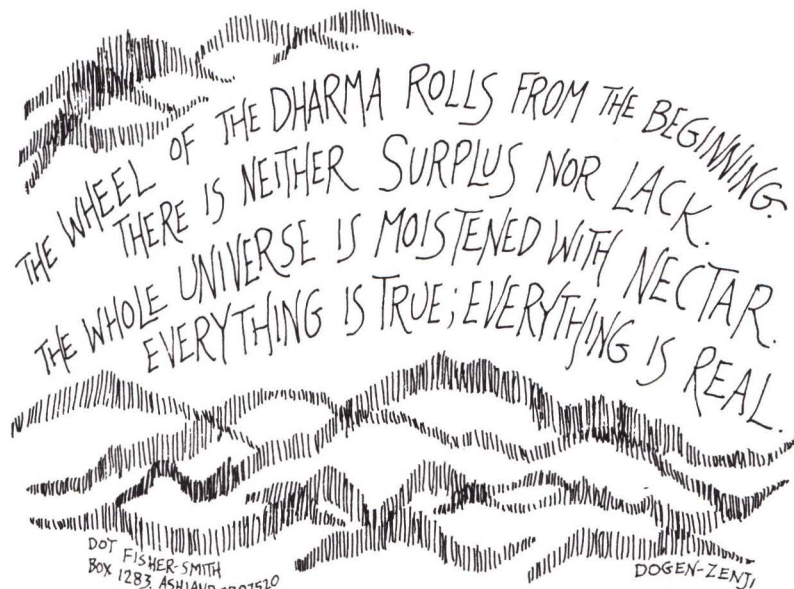 THE WHEEL OF THE DHARMA ROLLS FROM THE BEGINNING.
THERE IS NEITHER SURPLUS NOR LACK.
THE WHOLE UNIVERSE IS MOISTENED WITH NECTAR.
EVERYTHING IS TRUE; EVERYTHING IS REAL.
DOT FISHER-SMITH
BOX 1283, ASHLAND
DOGEN-ZENJI